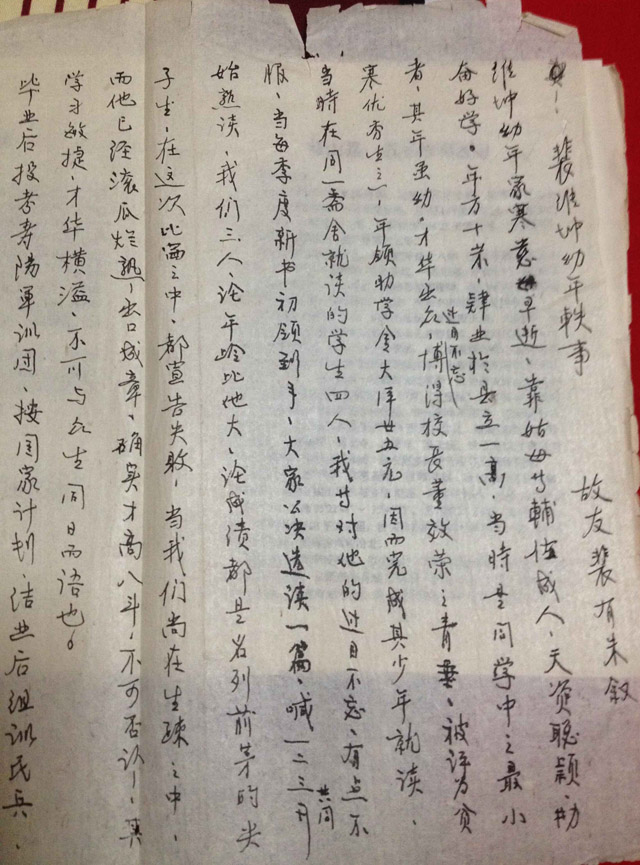 裴维坤幼年轶事
故友裴有朱叙
维坤幼年家寒慈母早逝、靠姑母辅佐成人、天资聪颖、勤
奋好学。年方十米、肄业于县立一高、当时是同学中之最小
者、其年虽幼。才华出众、过目不忘博得校长董效荣之青垂、被评为贫
寒优秀生之一、年领助学金大洋廿五元、因而完成其少年就读、
当时在同一斋舍就读的学生四人、我等对他的过目不忘、有点不
服、当每季度新书初领到手、大家公决选读一篇、喊一二三共同开
始熟读、我们三人、论年龄比他大、论成绩都是名列前茅的尖
子生、在这次比赛之中、都宣告失败、当我们尚在生疎之中、
而他已经滚瓜烂熟、出口成章、确实才高八斗、不可否认、其
学习敏捷、才华横溢、不可与众生同日而语也。
毕业后投考寿阳军训团、按国家计划、结业后组训民兵、